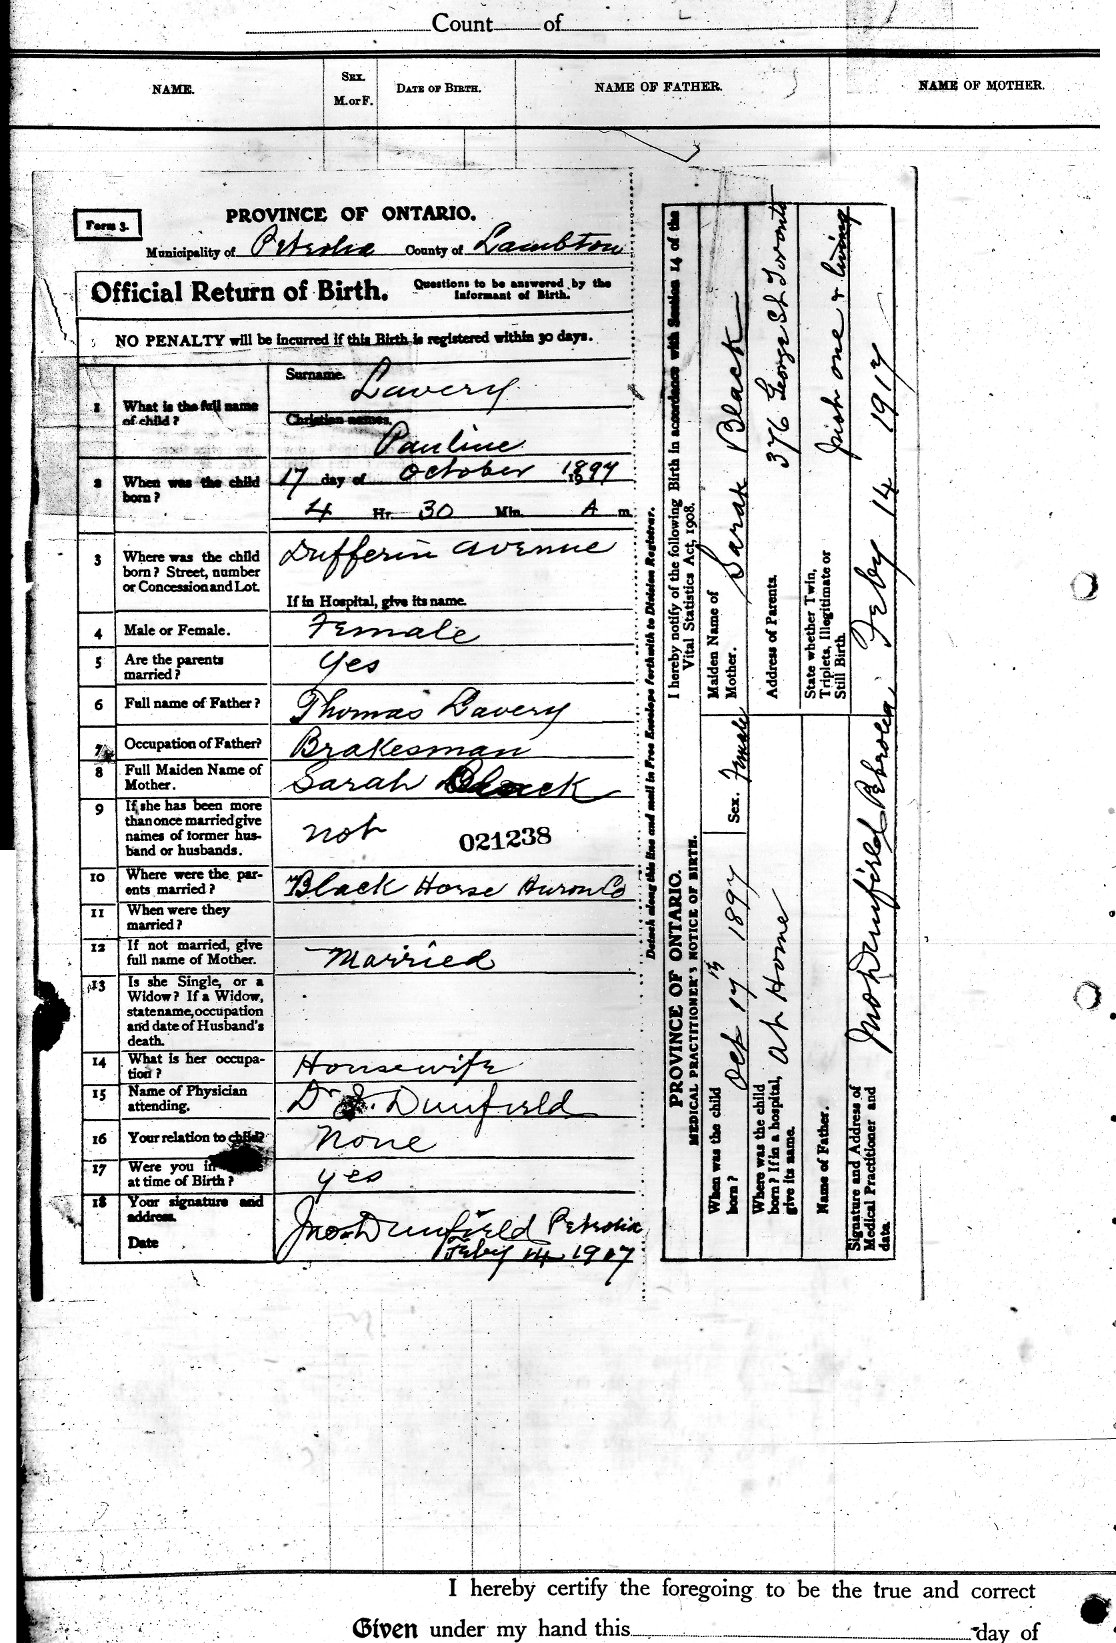 Count of
NAME.
SEX.
M. or F.
DATE OF BIRTH.
NAME OF FATHER.
NAME OF MOTHER.
Form 3.
PROVINCE OF ONTARIO.
Municipality of Petrolia County of Lambton
Official Return of Birth. Questions to be answered by the
Informant of Birth.
NO PENALTY will be incurred if this Birth is registered within 30 days.
1 What is the full name
of child?
Surname.
Lavery
Christian names.
Pauline
2 When was the child
born?
17 day of October 1897
4 Hr. 30 Min. A m.
3 Where was the child
born? Street, number
or Concession and Lot.
Dufferin Avenue
If in Hospital, give its name.
4 Male or Female. Female
5 Are the parents
married?
Yes
6 Full name of Father? Thomas Lavery
7 Occupation of Father? Brakesman
8 Full Maiden Name of
Mother.
Sarah Black
9 If she has been more
than once married give
names of former hus-
band or husbands.
not
021238
10 Where were the par-
ents married?
Black Horse Huron Co
11 When were they
married?
12 If not married, give
full name of Mother.
Married
13 Is she Single, or a
Widow? If a Widow,
state name, occupation
and date of Husband's
death.
14 What is her occupa-
tion?
Housewife
15 Name of Physician
attending.
Dr J. Dunfield
16 Your relation to child? None
17 Were you in
at time of Birth?
yes
18 Your signature and
address.
Jno Dunfield Petrolia
Date Feby 14 1917
Detach along this line and mail in Free Envelope forthwith to Division Registrar.
PROVINCE OF ONTARIO.
MEDICAL PRACTITIONER'S NOTICE OF BIRTH.
I hereby notify of the following Birth in accordance with Section 14 of the
Vital Statistics Act, 1908.
When was the child
born?
Oct 17th 1897
Sex. Female
Maiden Name of
Mother.
Sarah Black
Where was the child
born? If in a hospital,
give its name.
at Home
Address of Parents.
376 George St Toronto
Name of Father.
State whether Twin,
Triplets, Illegitimate or
Still Birth.
Irish one & living
Signature and Address of
Medical Practitioner and
data.
Jno Dunfield Petrolia Feby 14 1917
I hereby certify the foregoing to be the true and correct
Given under my hand this day of